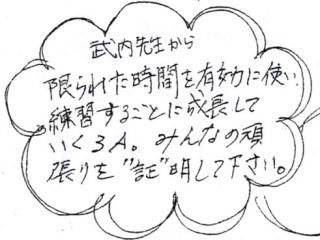 武内先生から
限られた時間を有効に使い
練習するごとに成長して
いく3A。みんなの頑
張りを"証"明して下さい。